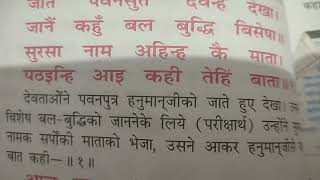 जात पवनसुत देवन्ह देखा।
जानैं कहुँ बल बुद्धि बिसेषा॥
सुरसा नाम अहिन्ह कै माता।
पठइन्हि आइ कही तेहिं बाता॥
देवताओंने पवनपुत्र हनुमान्‌जीको जाते हुए देखा।
विशेष बल-बुद्धिको जाननेके लिये (परीक्षार्थ) उन्होंने
नामक सर्पोंकी माताको भेजा, उसने आकर हनुमान्‌जीसे
बात कही—॥१॥